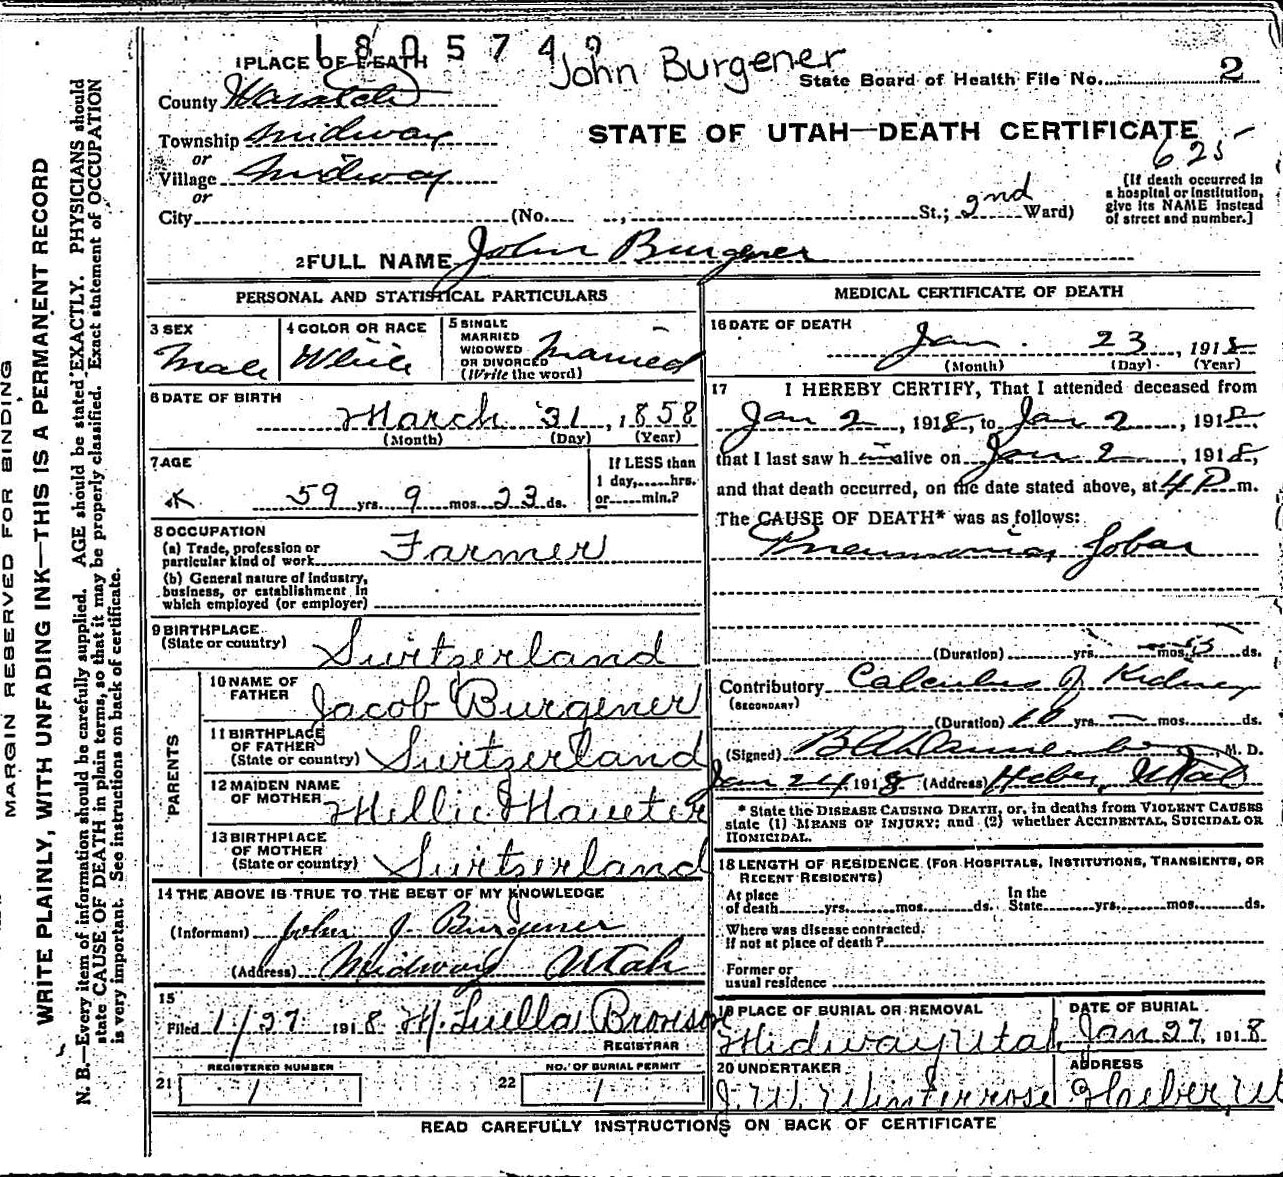 1805740
John Burgener
1 PLACE OF DEATH
State Board of Health File No. 2
County Wasatch
STATE OF UTAH—DEATH CERTIFICATE
Township Midway
625
or
Village Midway
or
City (No. , St.; 2nd Ward)
[If death occurred in
a hospital or institution,
give its NAME instead
of street and number.]
2 FULL NAME John Burgener
PERSONAL AND STATISTICAL PARTICULARS
3 SEX
Male
4 COLOR OR RACE
White
5 SINGLE
MARRIED
WIDOWED
OR DIVORCED
(Write the word)
Married
6 DATE OF BIRTH
March 31, 1858
(Month) (Day) (Year)
7 AGE
59 yrs 9 mos 23 ds.
If LESS than
1 day, hrs.
or min.?
8 OCCUPATION
(a) Trade, profession or
particular kind of work Farmer
(b) General nature of industry,
business, or establishment in
which employed (or employer)
9 BIRTHPLACE
(State or country) Switzerland
PARENTS
10 NAME OF
FATHER Jacob Burgener
11 BIRTHPLACE
OF FATHER
(State or country) Switzerland
12 MAIDEN NAME
OF MOTHER
13 BIRTHPLACE
OF MOTHER
(State or country) Switzerland
14 THE ABOVE IS TRUE TO THE BEST OF MY KNOWLEDGE
(Informant) John J. Burgener
(Address) Midway Utah
15
Filed 1/27 1918 M. Luella Bronson
REGISTRAR
21
REGISTERED NUMBER
1
22
NO. OF BURIAL PERMIT
1
MEDICAL CERTIFICATE OF DEATH
16 DATE OF DEATH
Jan. 23, 1918
(Month) (Day) (Year)
17 I HEREBY CERTIFY, That I attended deceased from
Jan 2, 1918, to Jan 2, 1918,
that I last saw him alive on Jan 2, 1918,
and that death occurred, on the date stated above, at 4 P m.
The CAUSE OF DEATH* was as follows:
Pneumonia, Lobar
(Duration) yrs. mos. ds.
Contributory Calculus of Kidney
(SECONDARY)
(Duration) 10 yrs. — mos. ds.
(Signed) M. D.
Jan 24 1918 (Address) Heber, Utah
* State the DISEASE CAUSING DEATH, or, in deaths from VIOLENT CAUSES
state (1) MEANS OF INJURY; and (2) whether ACCIDENTAL, SUICIDAL OR
HOMICIDAL.
18 LENGTH OF RESIDENCE (FOR HOSPITALS, INSTITUTIONS, TRANSIENTS, OR
RECENT RESIDENTS)
At place
of death yrs. mos. ds.
In the
State yrs. mos. ds.
Where was disease contracted.
if not at place of death?
Former or
usual residence
19 PLACE OF BURIAL OR REMOVAL
Midway Utah
DATE OF BURIAL
Jan 27, 1918
20 UNDERTAKER
J. W. Winterrose
ADDRESS
Heber, Ut
READ CAREFULLY INSTRUCTIONS ON BACK OF CERTIFICATE
MARGIN RESERVED FOR BINDING
WRITE PLAINLY, WITH UNFADING INK—THIS IS A PERMANENT RECORD
N. B.—Every item of information should be carefully supplied. AGE should be stated EXACTLY. PHYSICIANS should
state CAUSE OF DEATH in plain terms, so that it may be properly classified. Exact statement of OCCUPATION
is very important. See instructions on back of certificate.